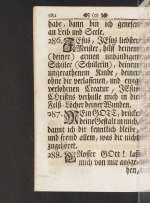 habe, dann bin ich genesen
an Leib und Seele.
286. JEsus, JEsus liebster
Meister, hilf deinem
(deiner) armen unbändigen
Schüler (Schülerin), deinem
ungerathenen Kinde, deiner
ohne dir verlassenen, und ewig
verlohrnen Creatur, JEsu
Christus verhülle mich in die
Felß-Löcher deiner Wunden.
287. Mein GOTT, drücke
deine Gestalt in mich,
damit ich dir kenntlich bleibe,
und fremd allem, was dir nicht
zugehöret.
288. Grosser GOtt! laß
mich von mir ausge-
hen,